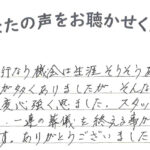 たの声をお聴かせく
行なう機会は生涯そうそうあ
が多くありましたが、そんな
変心強く思えました。スタッ
一連の葬儀を終える事が
す。ありがとうございました